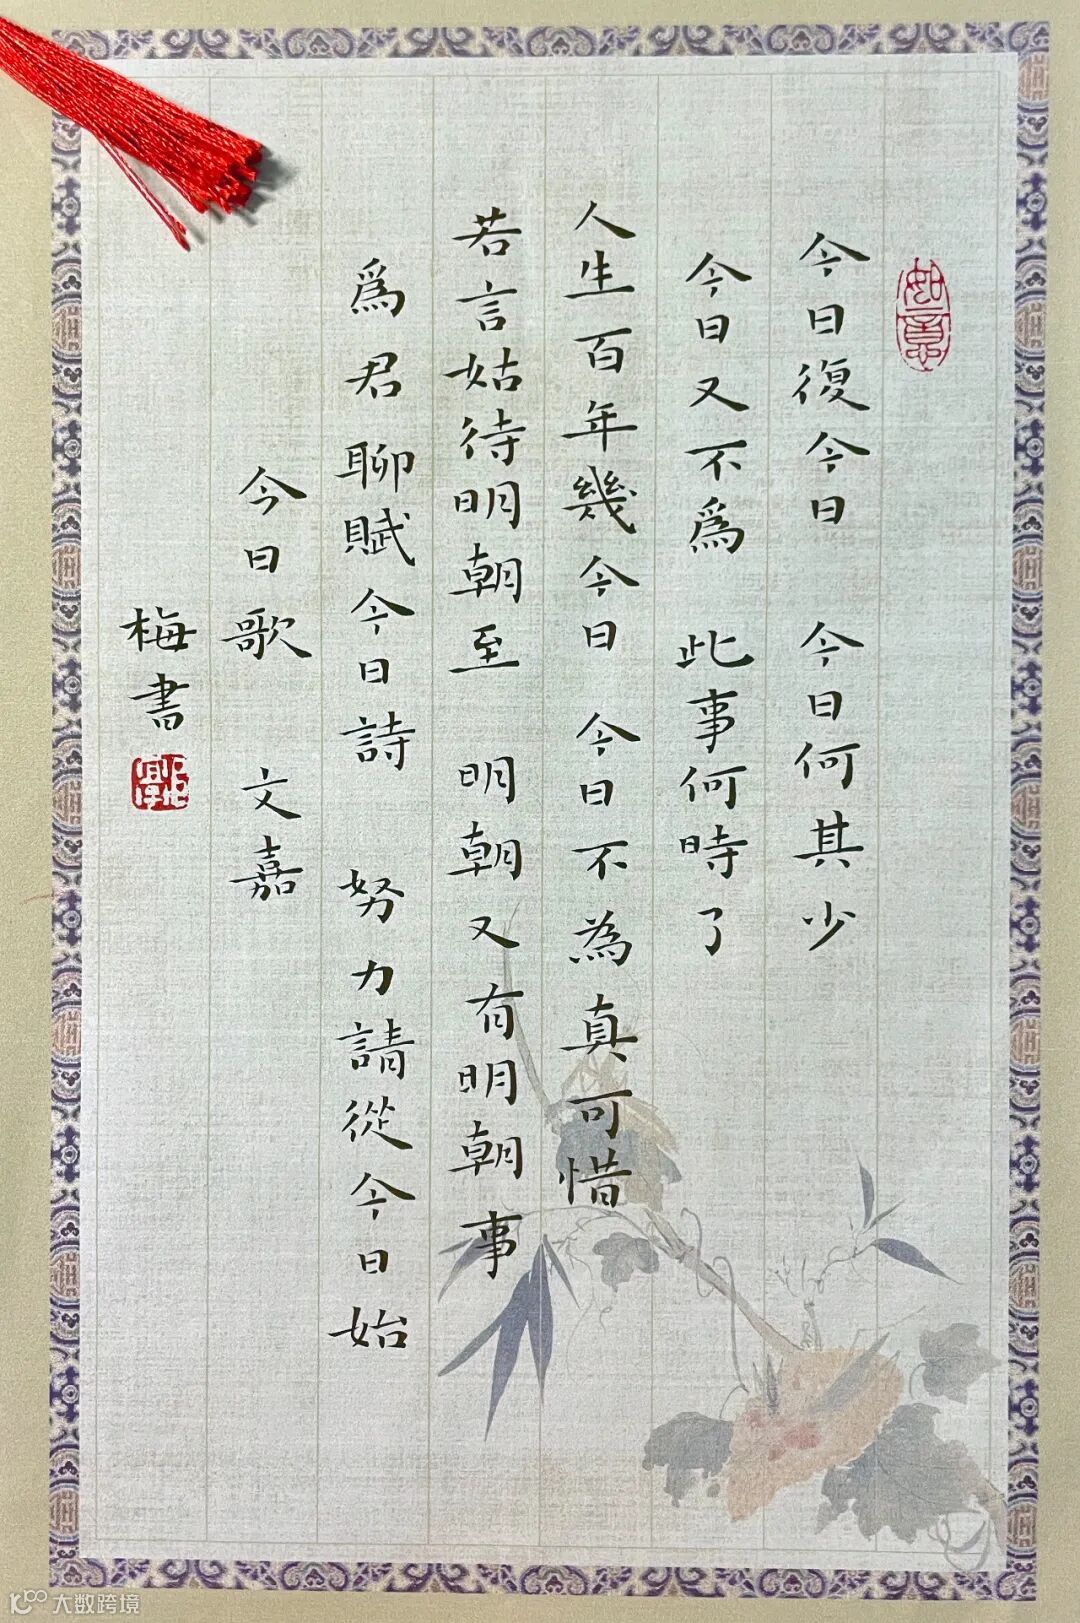 如意
今日復今日 今日何其少
今日又不爲 此事何時了
人生百年幾今日 今日不為真可惜
若言姑待明朝至 明朝又有明朝事
爲君聊賦今日詩 努力請從今日始
今日歌 文嘉
梅書
大数跨境